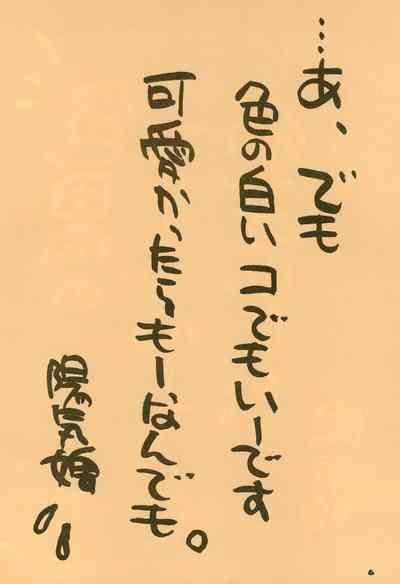 …あ、でも
色の白いコでもいーです
可愛かったらもーなんでも。
陽気婢